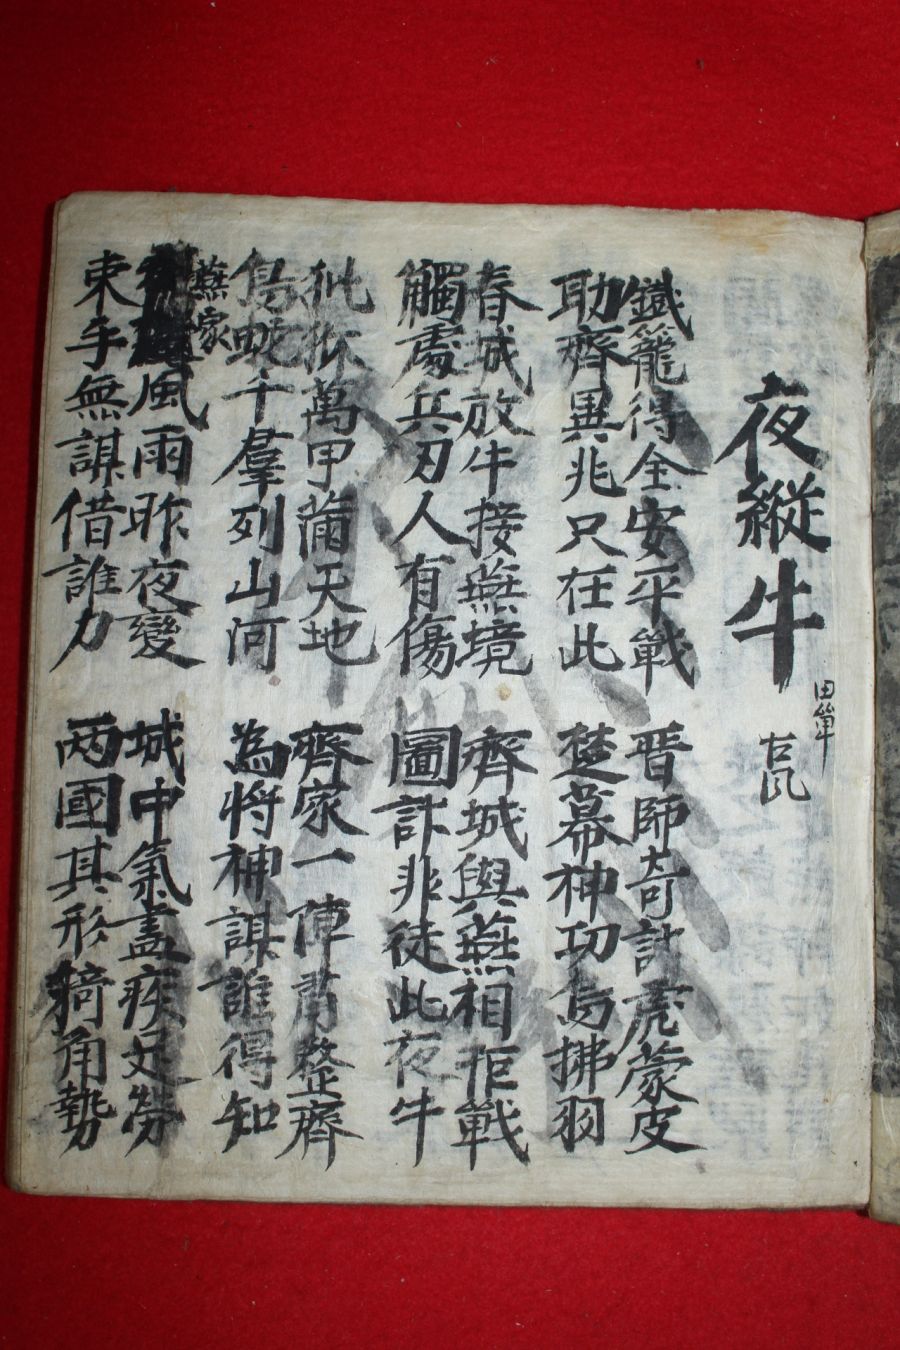 夜縱牛
田單
鐵籠得全安平戰 晋師奇計虎蒙皮
助齊異兆只在此 楚幕神功烏拂羽
春城放牛接燕境 齊城與燕相拒戰
觸處兵刃人有傷 圖計非徒此夜牛
萬甲 天地 齊家一陣肅整齊
千羣列山河 為將神謀誰得知
燕家
風雨昨夜變 城中氣盡疾足勞
束手無謀借誰力 兩國其形犄角勢